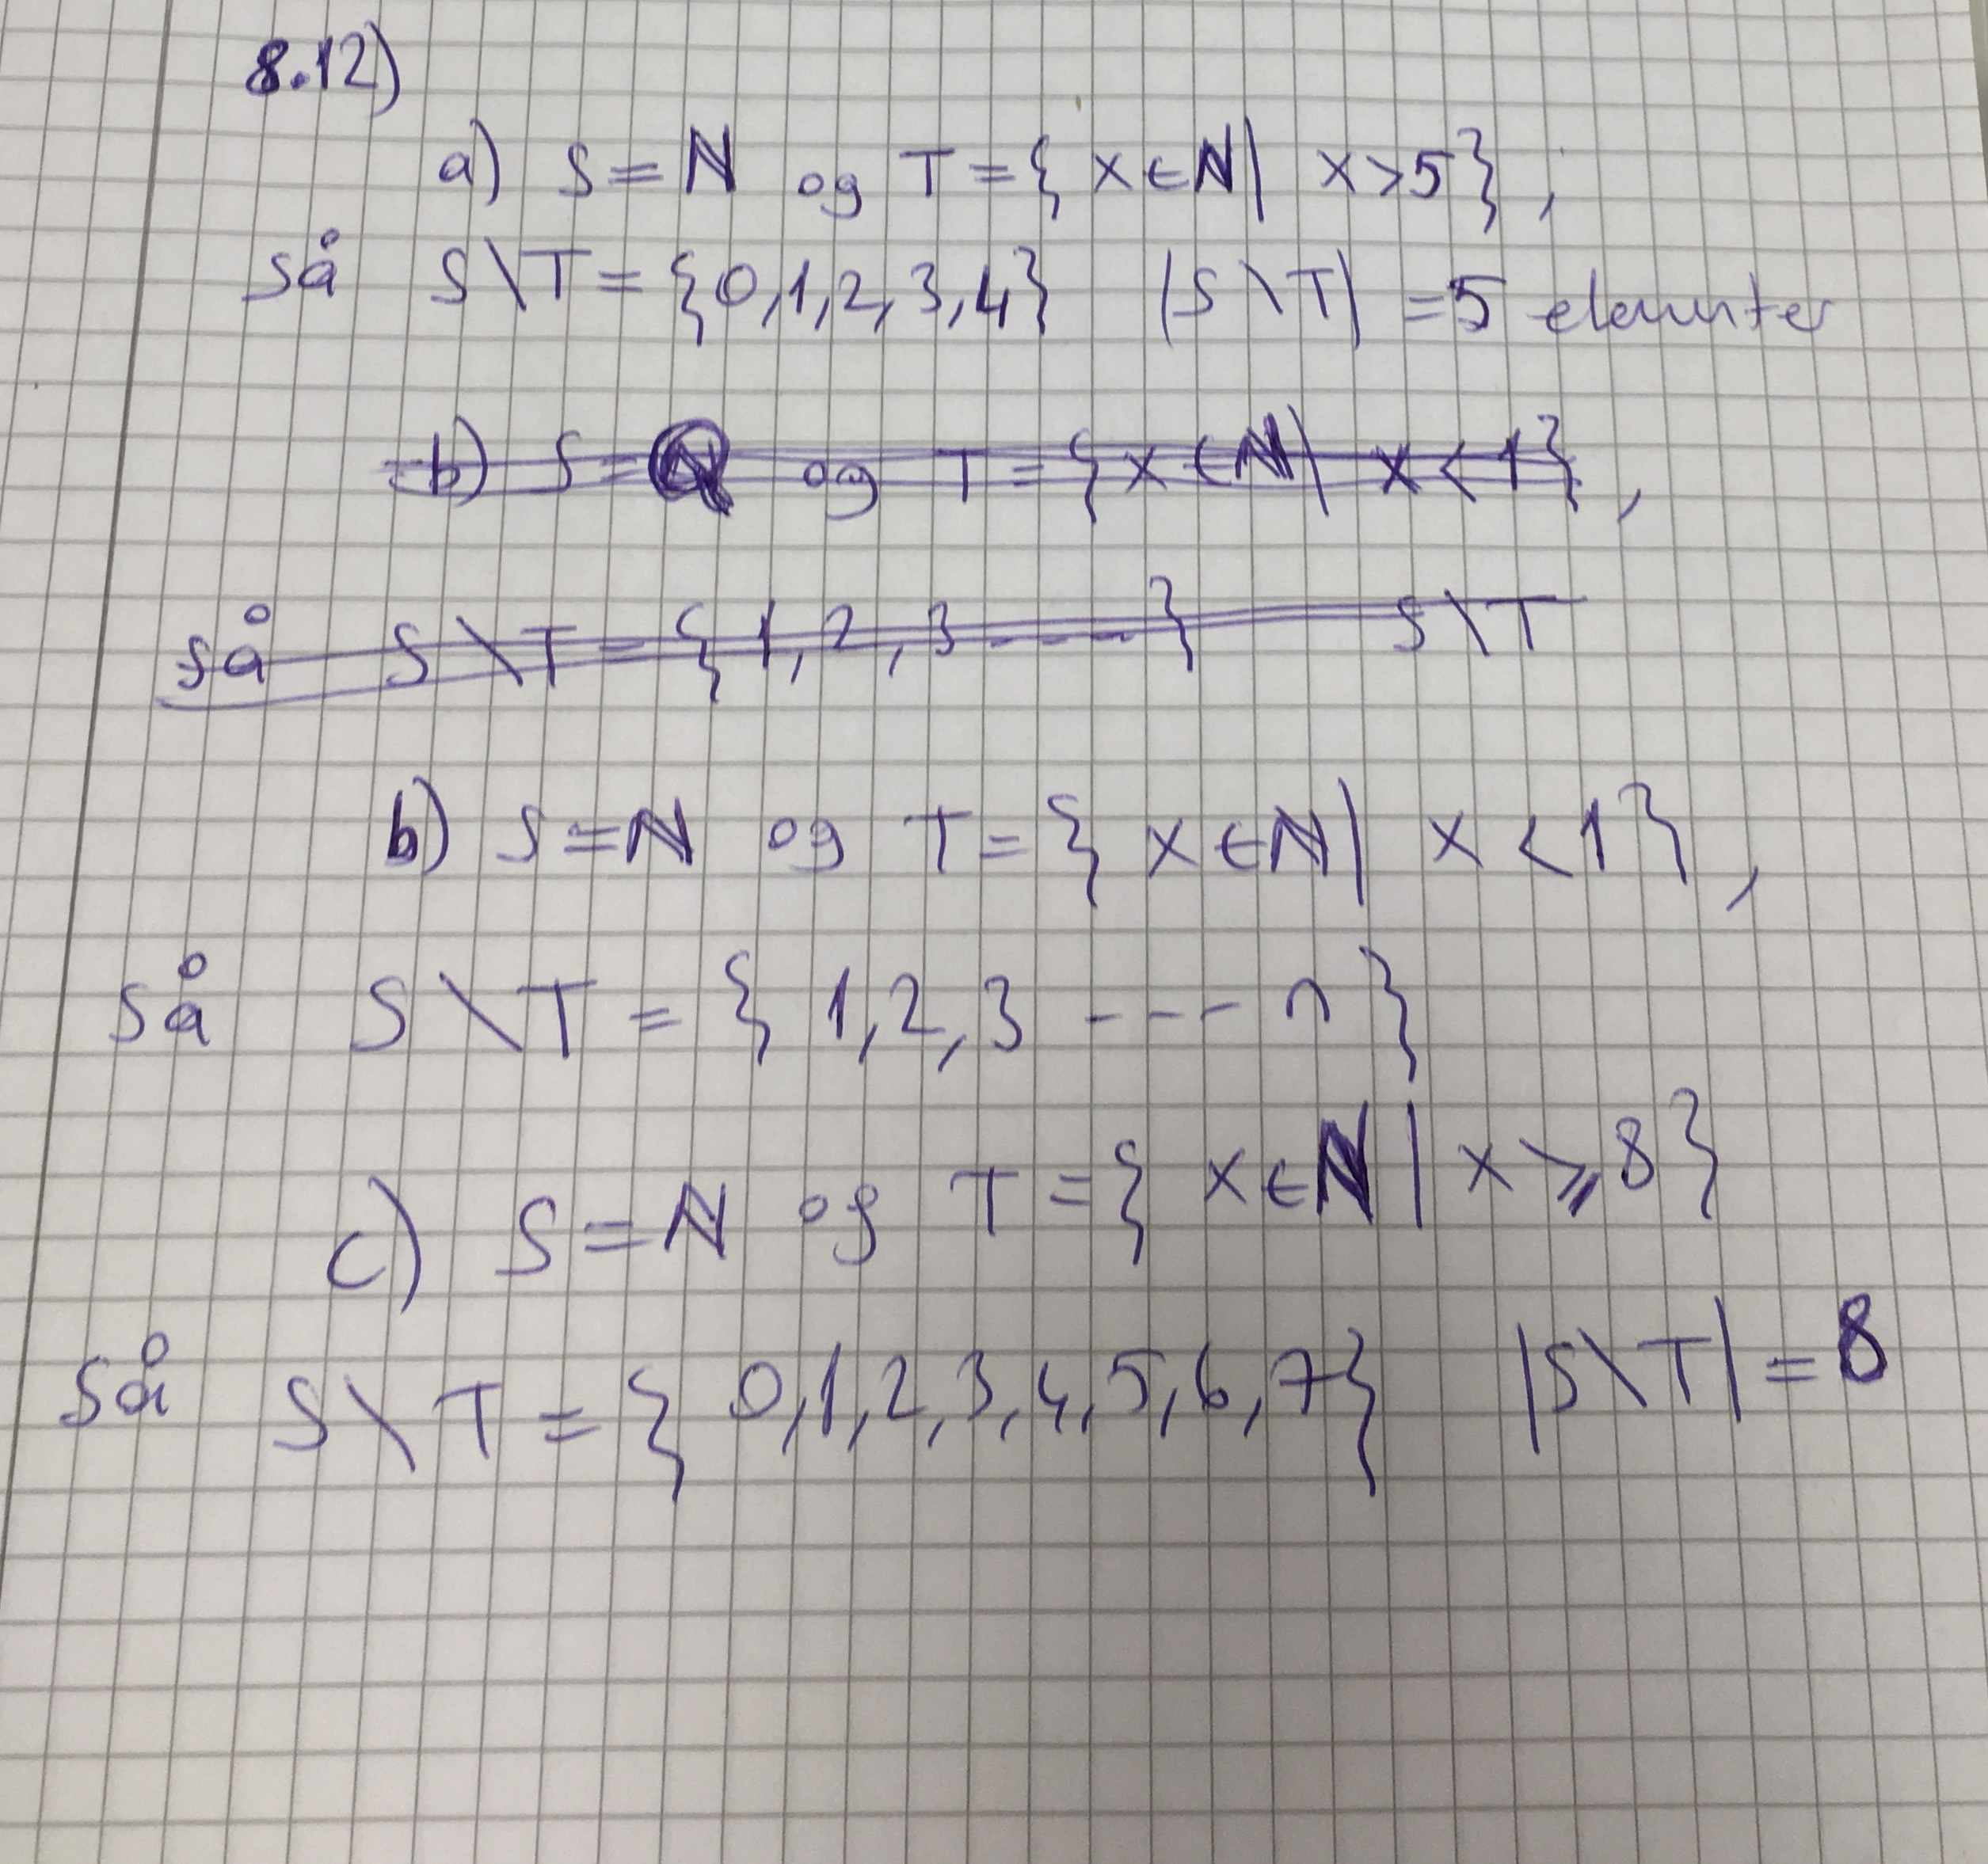 8.12)
a) S = ℕ og T = { x ∈ ℕ | x > 5 } ,
så S \ T = {0,1,2,3,4} |S \ T| = 5 elementer
b) S = og T = { x ∈ ℕ | x < 1 } ,
så S \ T = { 1, 2, 3 - - - - } S \ T
b) S = ℕ og T = { x ∈ ℕ | x < 1 } ,
så S \ T = { 1, 2, 3 - - - n }
c) S = ℕ og T = { x ∈ ℕ | x ⩾ 8 }
så S \ T = { 0,1,2,3,4,5,6,7 } |S \ T| = 8